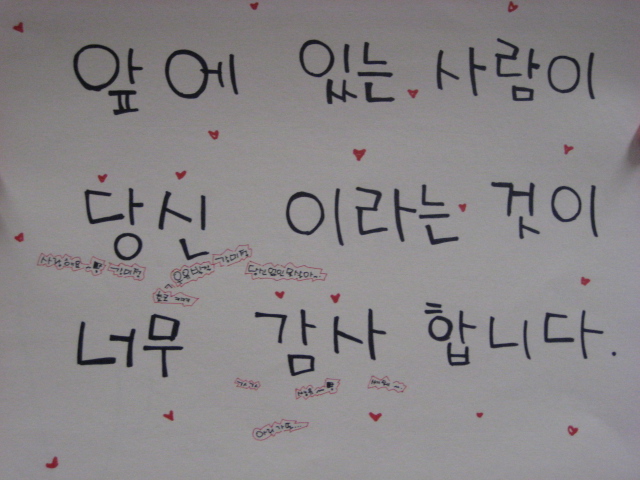 앞에 있는 사람이
당신 이라는 것이
너무 감사 합니다.